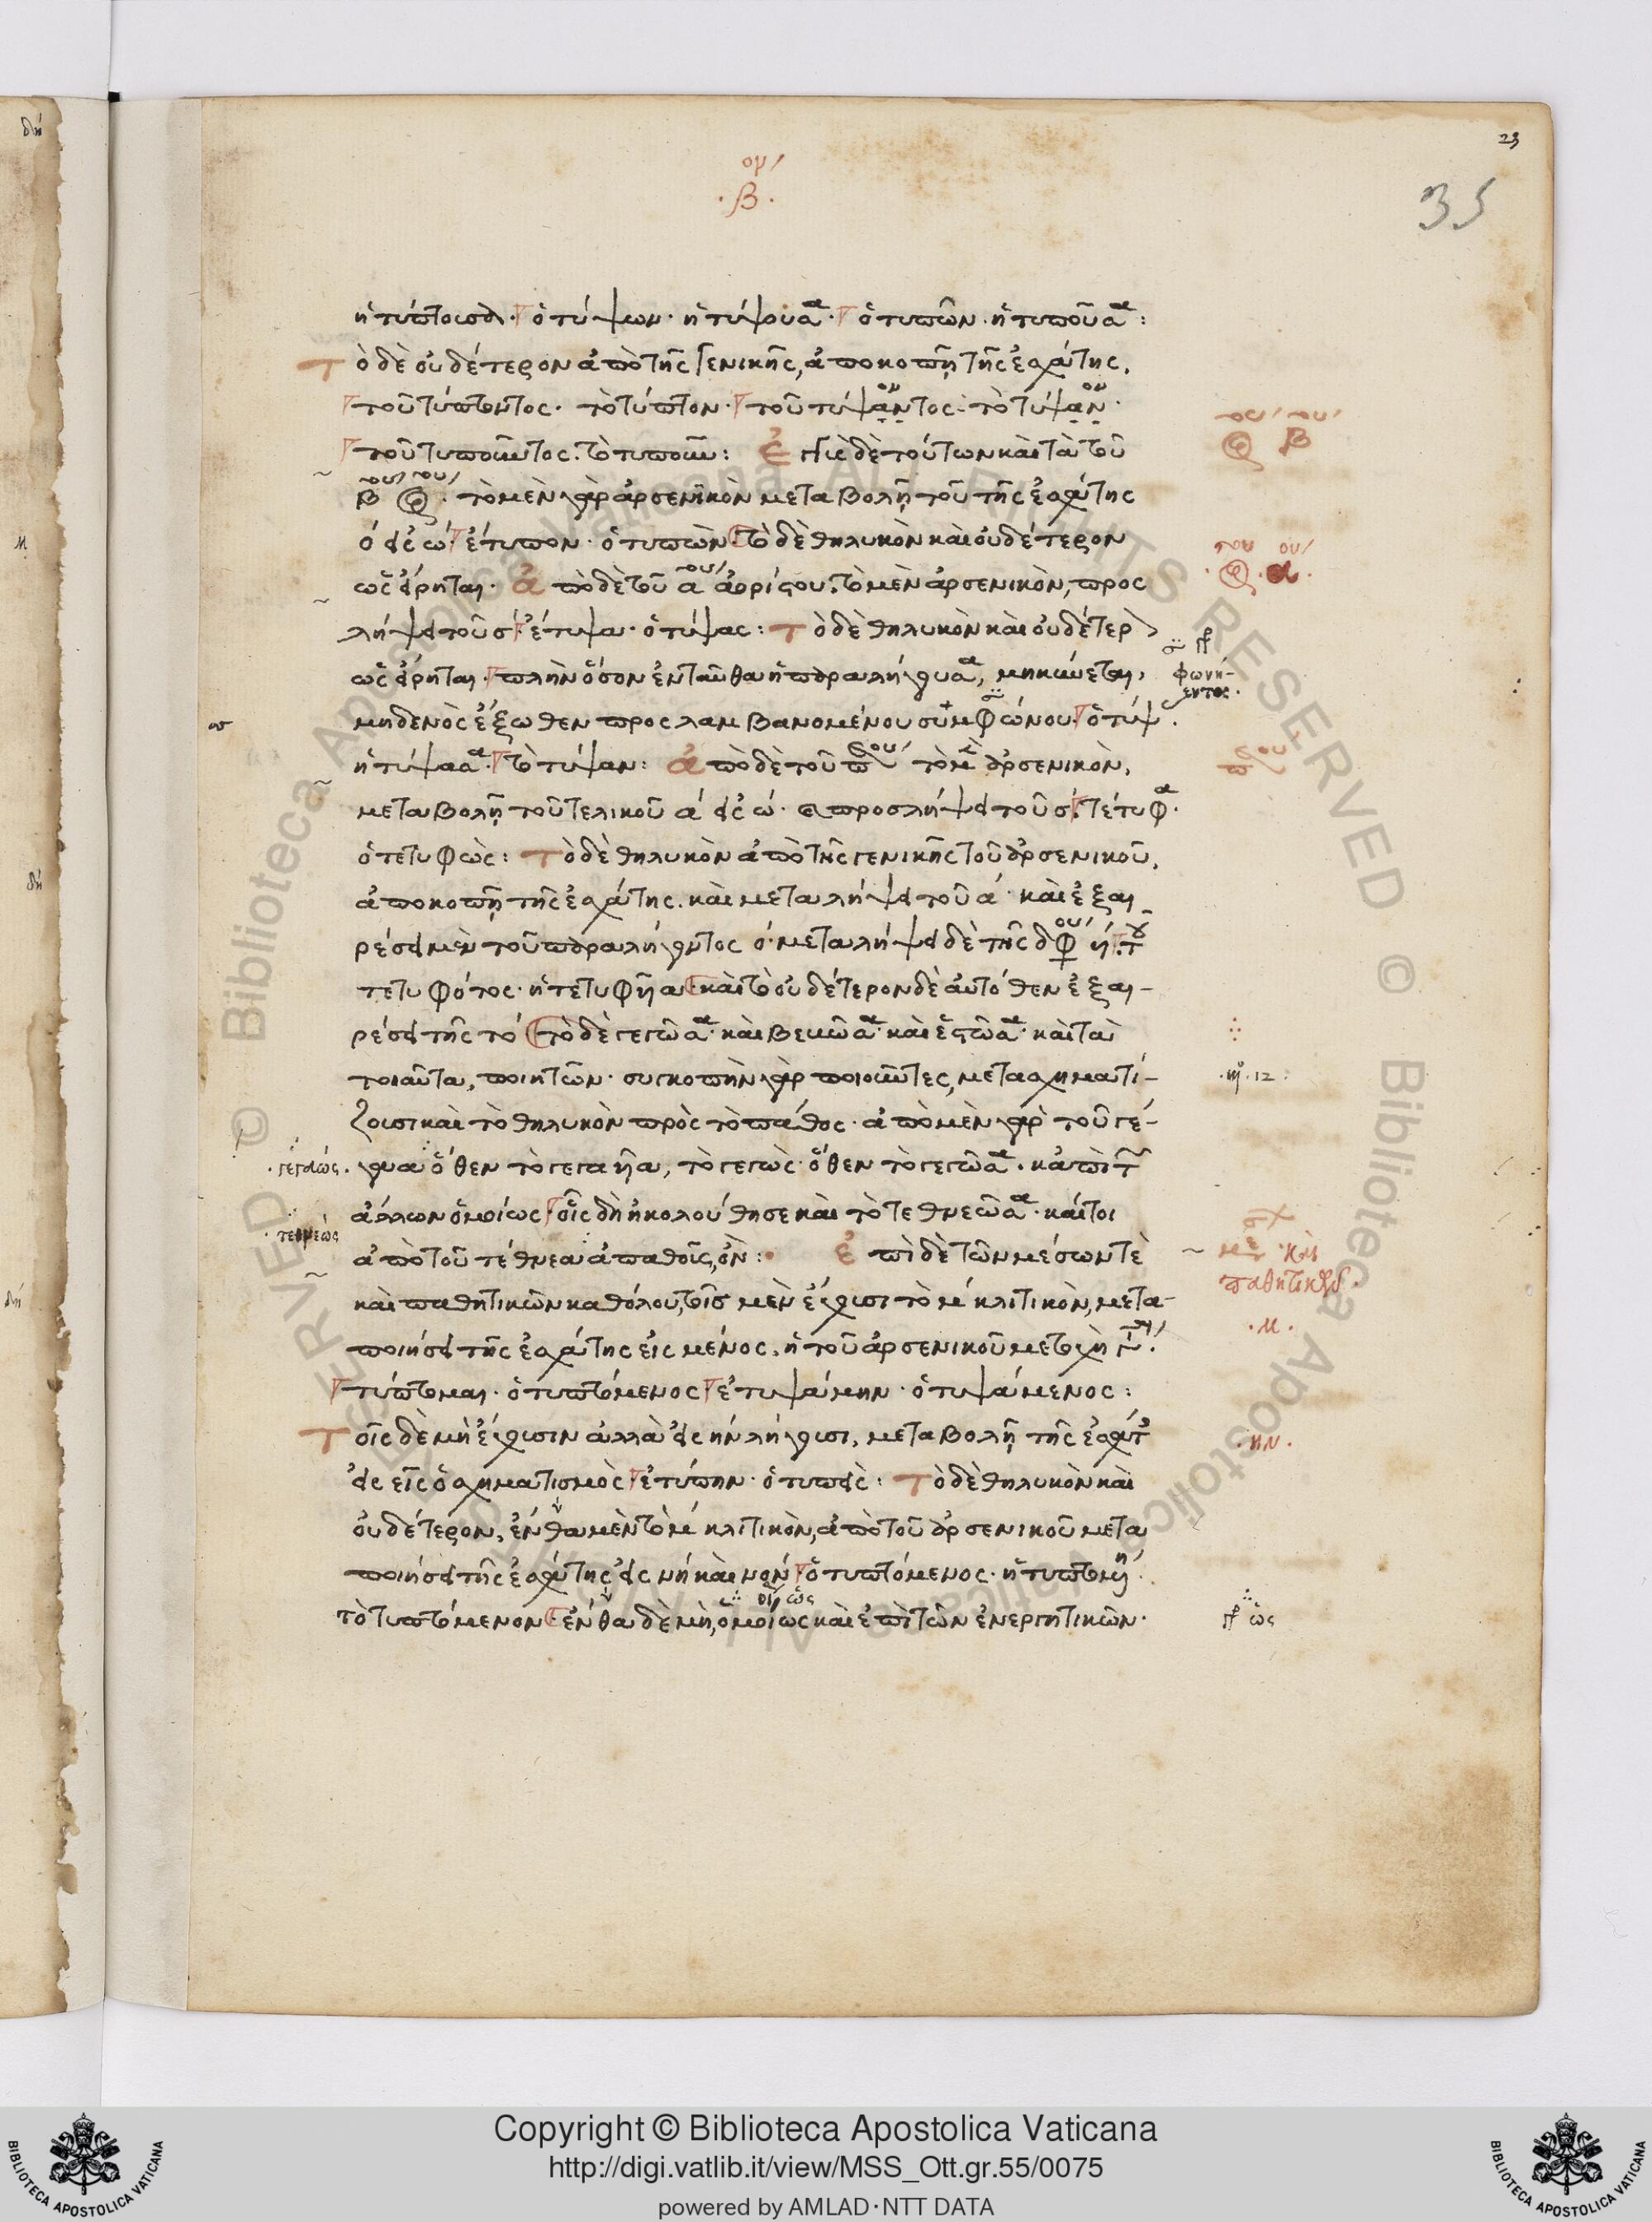 23
35
ου
·β·
ἡ τύπτουσα· ὁ τύψων· ἡ τύψουσα· ὁ τυπῶν· ἡ τυποῦσα:
Τὸ δὲ οὐδέτερον ἀπὸ τῆς γενικῆς, ἀποκοπῇ τῆς ἐσχάτης,
τοῦ τύπτοντος· τὸ τύπτον· τοῦ τύψαντος· τὸ τύψαν·
τοῦ τυποῦντος· τὸ τυποῦν: Ἐπὶ δὲ τούτων καὶ τὰ τοῦ
β · τὸ μὲν γὰρ ἀρσενικὸν μεταβολῇ τοῦ τῆς ἐσχάτης
ὁ εἰς ώ· ἔτυπον· ὁ τυπών· τὸ δὲ θηλυκὸν καὶ οὐδέτερον
ὡς εἴρηται· ἀπὸ δὲ τοῦ α ἀορίστου, τὸ μὲν ἀρσενικὸν, προς
λήψει τοῦ σ· ἔτυψα· ὁ τύψας: Τὸ δὲ θηλυκὸν καὶ οὐδέτερ
ὡς εἴρηται· πλὴν ὅσον ἐνταῦθα ἡ παραλήγουσα, μηκύνεται,
φωνή-
εντος·
μηδενὸς ἔξωθεν προσλαμβανομένου συμφώνου· ὁ τύψ·
ἡ τύψασα· τὸ τύψαν: ἀπὸ δὲ τοῦ π τὸ μὲν ἀρσενικὸν,
μεταβολῇ τοῦ τελικοῦ α εἰς ώ· καὶ προσλήψει τοῦ σ· τέτυφα·
ὁ τετυφὼς: Τὸ δὲ θηλυκὸν ἀπὸ τῆς γενικῆς τοῦ ἀρσενικοῦ,
ἀποκοπῇ τῆς ἐσχάτης, καὶ μεταλήψει τοῦ α· καὶ ἐξαι
ρέσει μὲν τοῦ παραλήγοντος ο· μεταλήψει δὲ τῆς διφ ἡ· τ
τετυφότος· ἡ τετυφῆα· καὶ τὸ οὐδέτερον δὲ αὐτόθεν ἐξαι-
ρέσει τῆς το· τὸ δὲ γεγῶσα· καὶ βεβῶσα· καὶ ἑστῶσα· καὶ τὰ
τοιαῦτα, ποιητῶν· συγκοπὴν γὰρ ποιοῦντες, μετασχηματί-
ζουσι καὶ τὸ θηλυκὸν πρὸς τὸ πάθος· ἀπὸ μὲν γὰρ τοῦ γέ-
·γεγαώς· γαα ὅθεν τὸ γεγαῆα, τὸ γεγὼς· ὅθεν τὸ γεγῶσα· κἀπὶ τ
ἄλλων ὁμοίως· οἷς δὴ ἠκολούθησε καὶ τὸ τεθνεῶσα· καίτοι
ἀπὸ τοῦ τέθνεαα ἀπαθοῦς, ὄν: Ἐπὶ δὲ τῶν μέσων τὲ
καὶ παθητικῶν καθόλου, τοῖς μὲν ἔχουσι τὸ μ κλιτικὸν, μετα-
παθητικῶν·
·μ·
ποιήσει τῆς ἐσχάτης εἰς μένος, ἡ τοῦ ἀρσενικοῦ μετοχὴ γ·
τύπτομαι· ὁ τυπτόμενος· ἐτυψάμην· ὁ τυψάμενος:
Τοῖς δὲ μὴ ἔχουσιν ἀλλὰ εἰς ην λήγουσι, μεταβολῇ τῆς ἐσχάτ
·ην·
εἰς εἰς ὁ σχηματισμὸς· ἐτύπην· ὁ τυπεὶς: Τὸ δὲ θηλυκὸν καὶ
οὐδέτερον, ἔνθα μὲν τὸ μ κλιτικὸν, ἀπὸ τοῦ ἀρσενικοῦ μετα
ποιήσει τῆς ἐσχάτης εἰς νη καὶ νον· ὁ τυπτόμενος· ἡ τυπτομένη·
τὸ τυπτόμενον· ἔνθα δὲ μὴ, ὁμοίως καὶ ἐπὶ τῶν ἐνεργητικῶν·
Copyright © Biblioteca Apostolica Vaticana
http://digi.vatlib.it/view/MSS_Ott.gr.55/0075
powered by AMLAD·NTT DATA
BIBLIOTECA APOSTOLICA VATICANA
BIBLIOTECA APOSTOLICA VATICANA